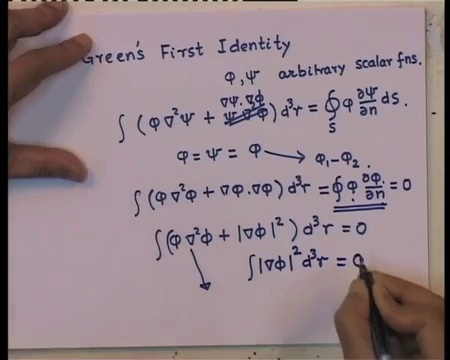 Green's First Identity
φ, ψ arbitrary scalar fns.
∇ψ.∇φ
∫ (φ∇²ψ + ψ∇²φ) d³r = ∮_S φ ∂ψ/∂n dS.
φ = ψ = φ → φ₁-φ₂.
∫(φ∇²φ + ∇φ.∇φ) d³r = ∮ φ ∂φ/∂n = 0
∫(φ∇²φ + |∇φ|²) d³r = 0
∫|∇φ|² d³r = 0